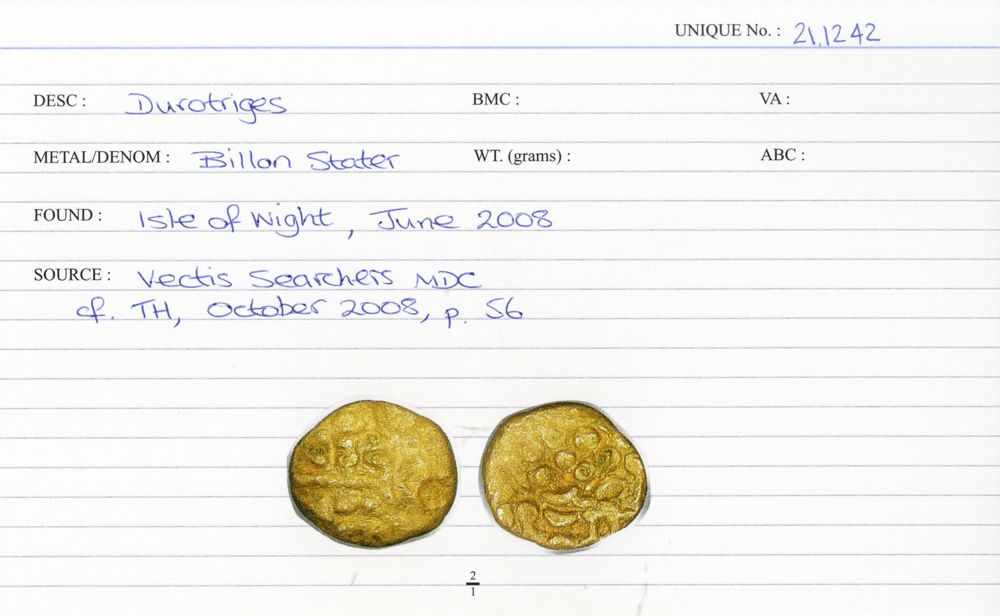 UNIQUE No. : 21,1242
DESC : Durotriges BMC : VA :
METAL/DENOM : Billon Stater WT. (grams) : ABC :
FOUND : Isle of Wight, June 2008
SOURCE : Vectis Searchers MDC
cf. TH, October 2008, p. 56
2
1